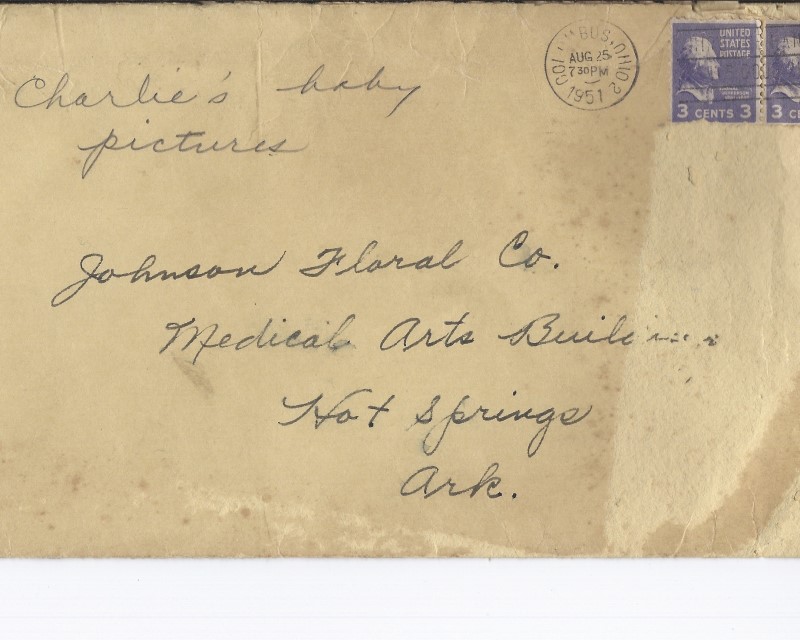 Charlie's baby
pictures
COLUMBUS, OHIO 2
AUG 25
730PM
1951
UNITED
STATES
POSTAGE
3 CENTS 3
3 CE
Johnson Floral Co.
Medical Arts Building
Hot Springs
Ark.